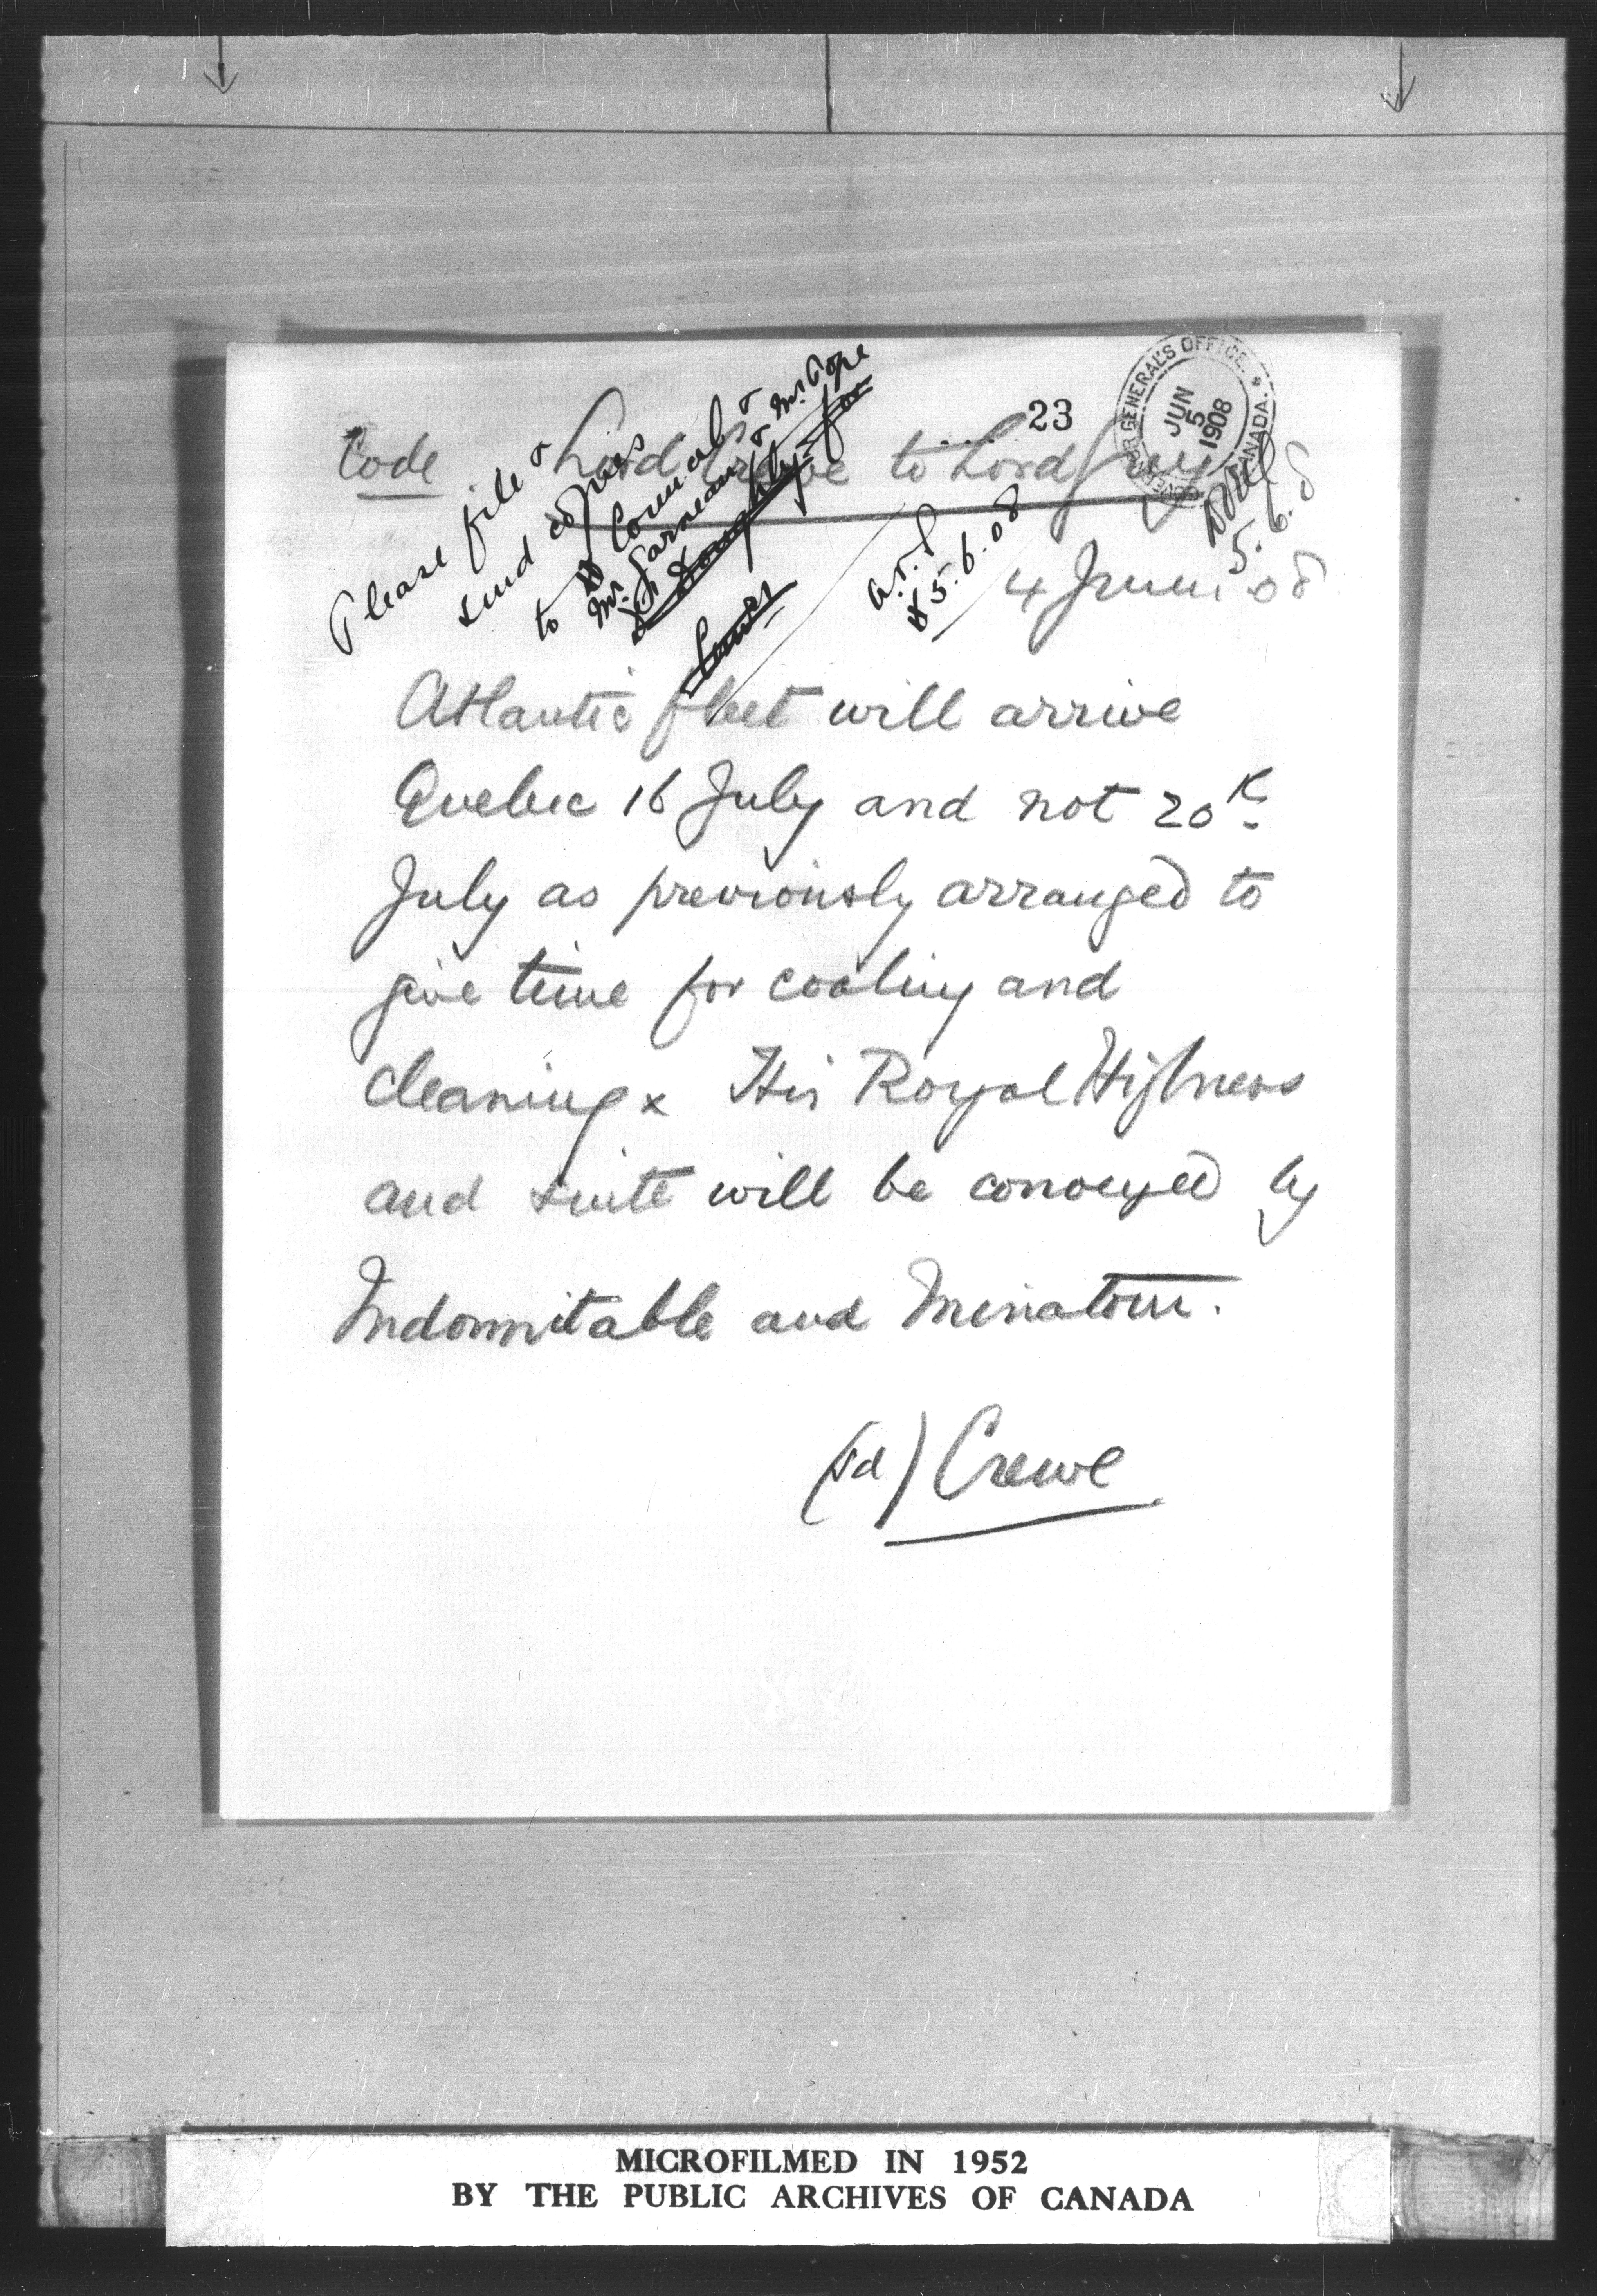 23
GOVERNOR GENERAL'S OFFICE. * CANADA.
JUN
5
1908
Code Lord Crewe to Lord Grey
Please file &
send copies
to Cornwall &
Mr. Garneau & Mr. Pope
Dr Doughty for
5.6.08
5.6.8
4 June 08
Atlantic fleet will arrive
Quebec 16 July and not 20th
July as previously arranged to
give time for coaling and
cleaning x His Royal Highness
and suite will be conveyed by
Indomitable and Minatour.
(sd) Crewe
MICROFILMED IN 1952
BY THE PUBLIC ARCHIVES OF CANADA